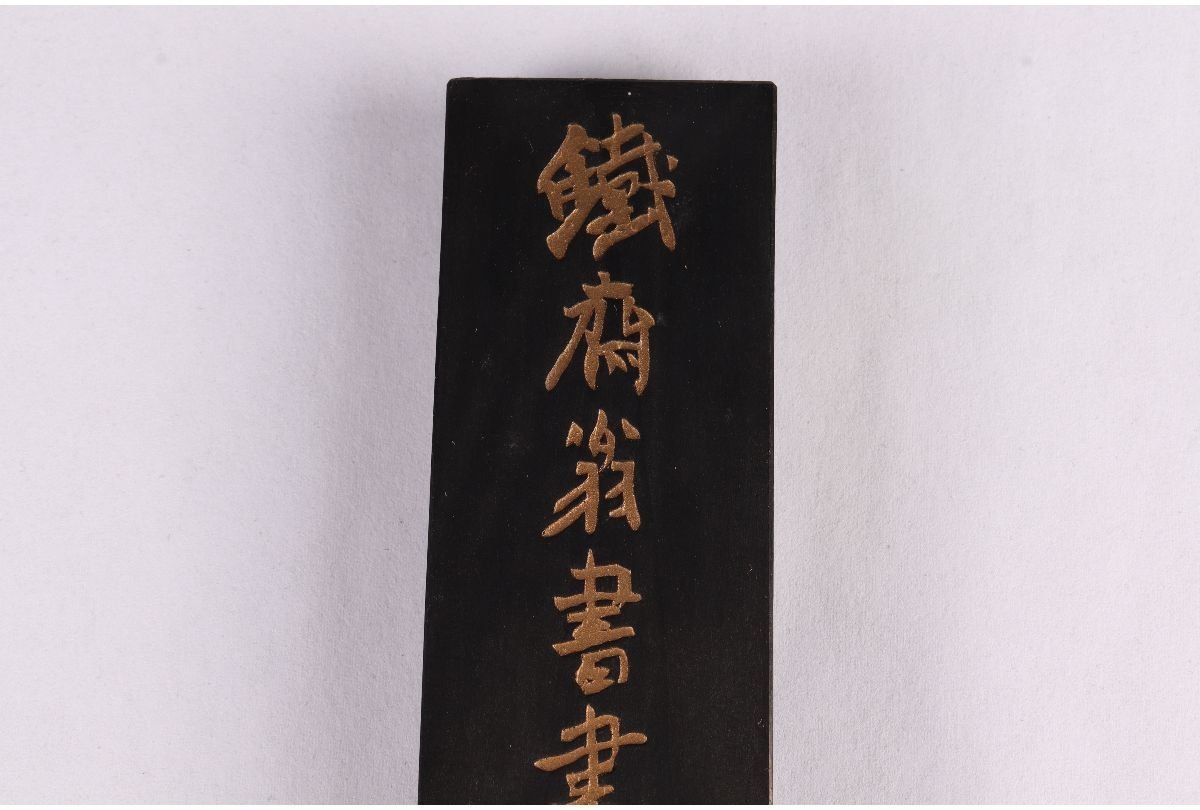 鐵齋翁書